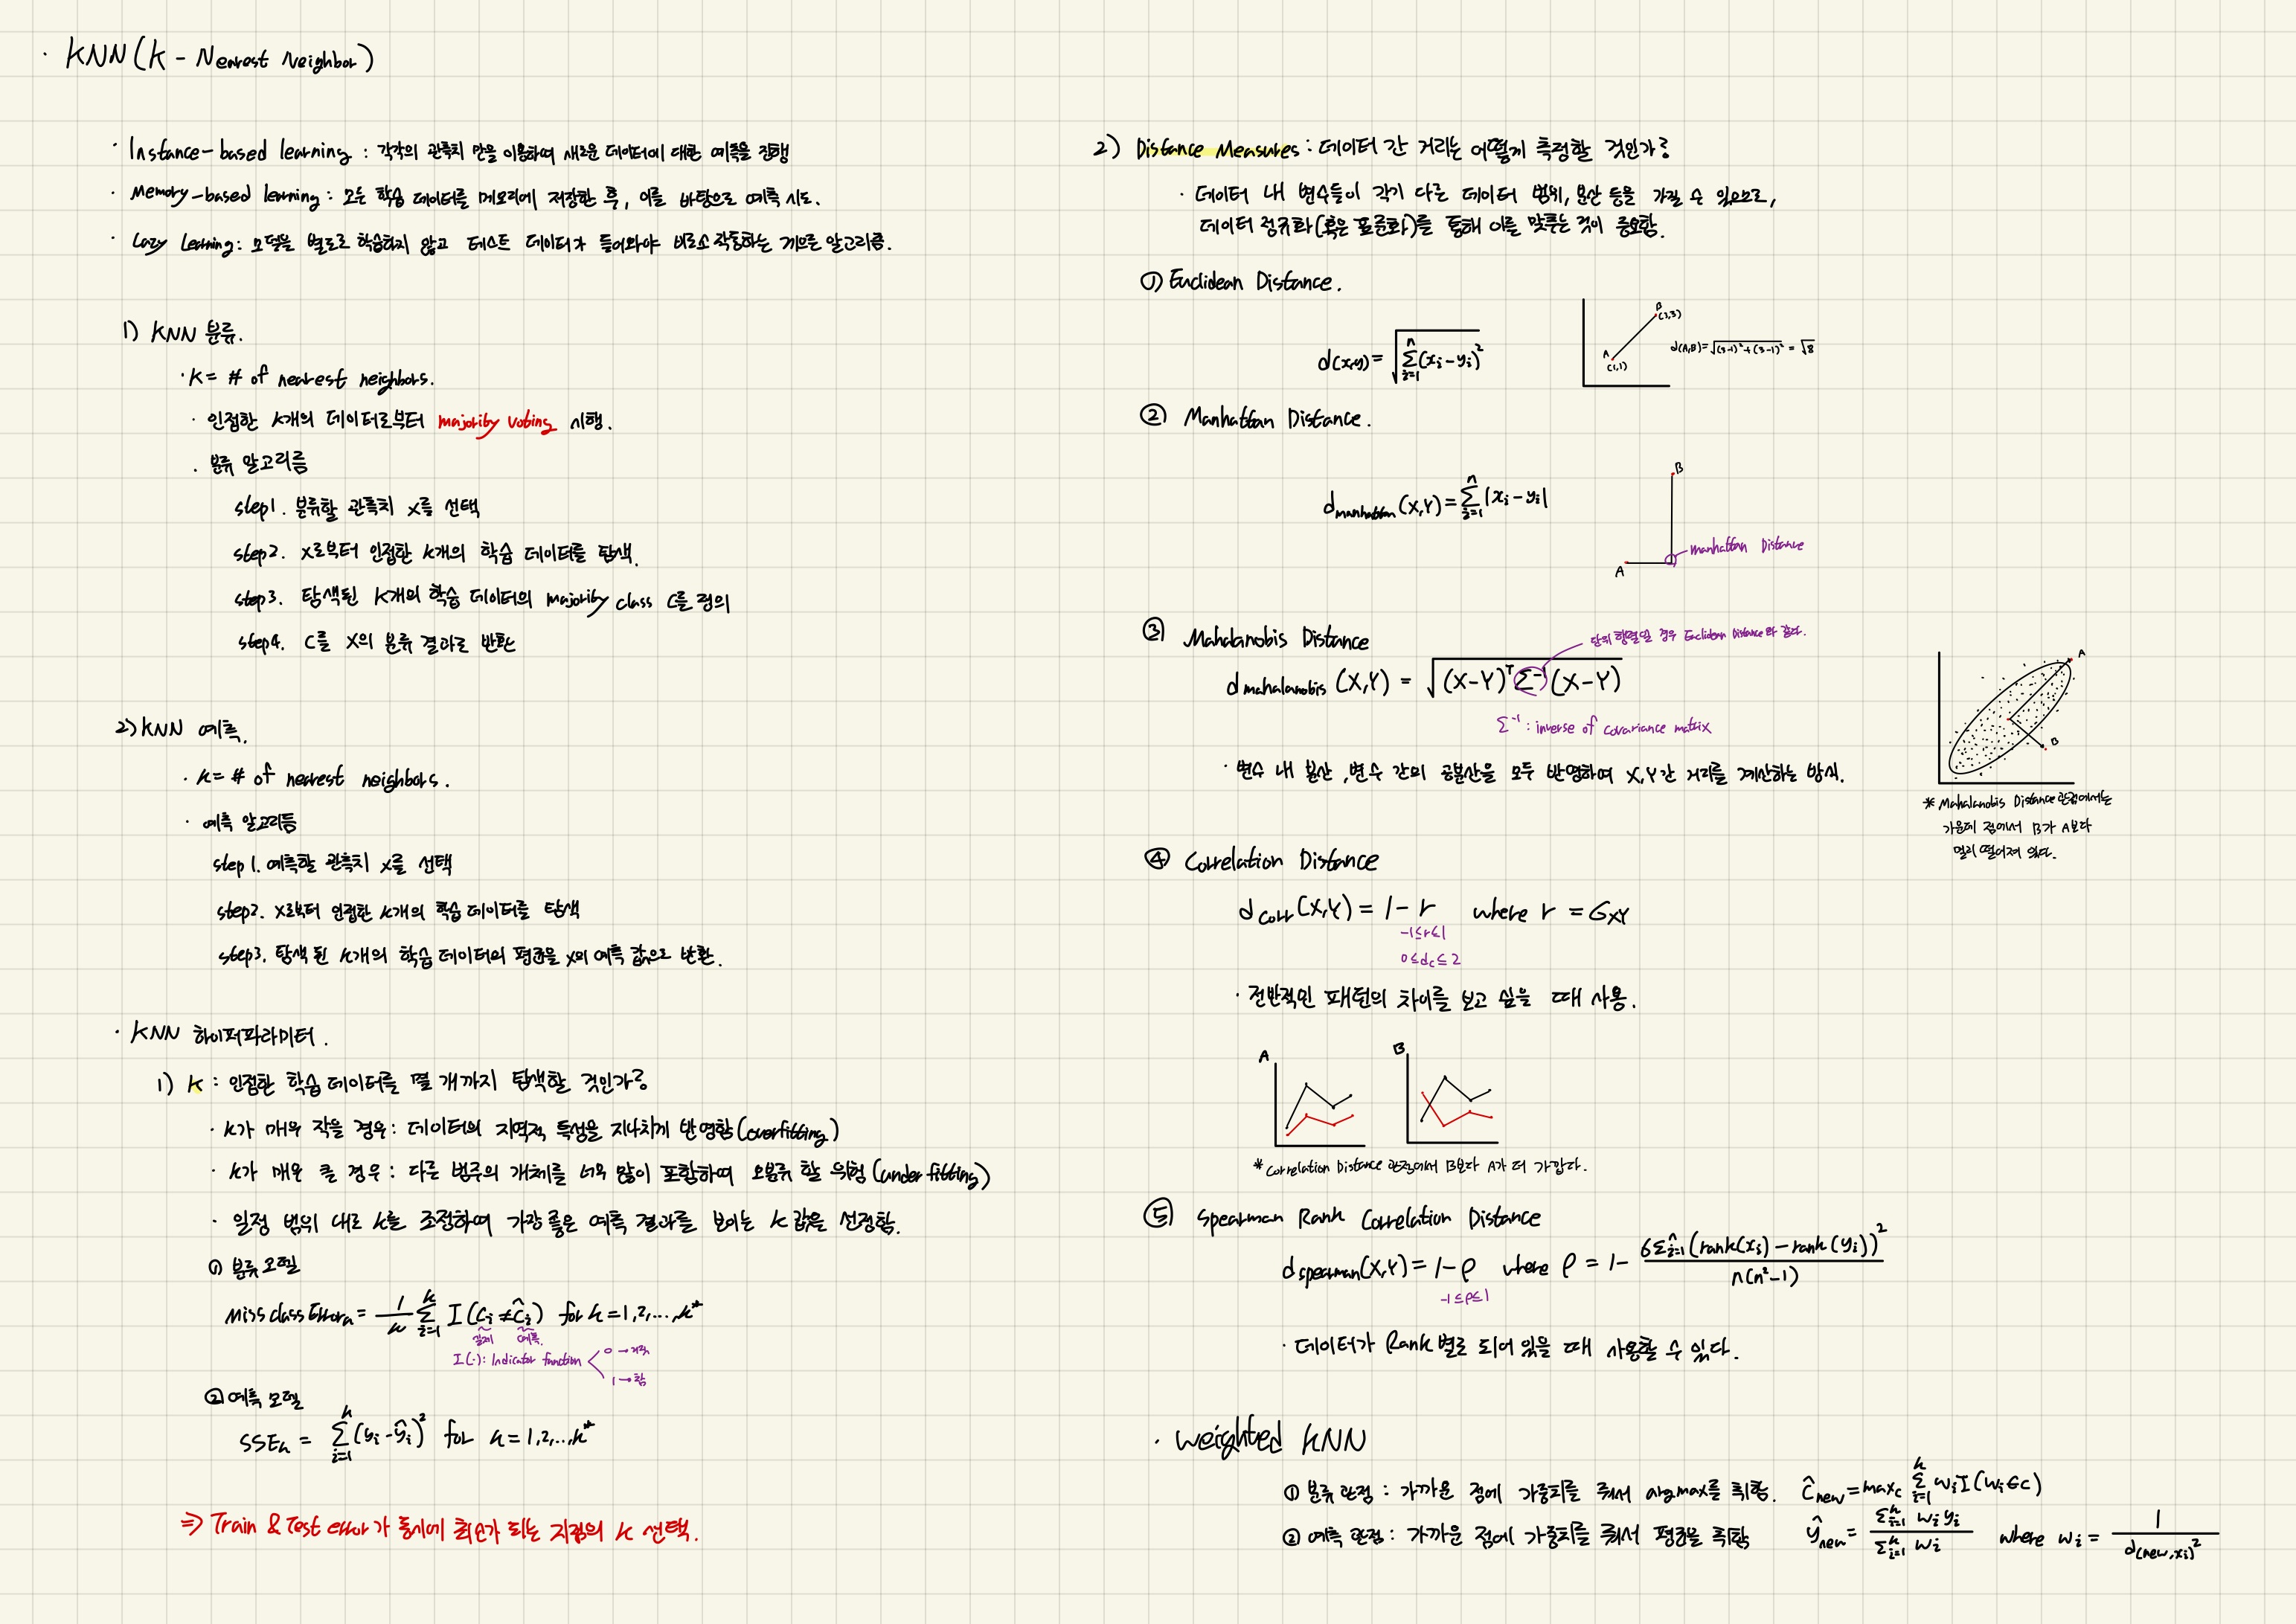 · KNN (K - Nearest Neighbor)
· Instance-based learning : 각각의 관측치 만을 이용하여 새로운 데이터에 대한 예측을 진행
· Memory-based learning : 모든 학습 데이터를 메모리에 저장한 후, 이를 바탕으로 예측 시도.
· Lazy Learning : 모델을 별도로 학습하지 않고 테스트 데이터가 들어와야 비로소 작동하는 게으른 알고리즘.
1) KNN 분류.
· K = # of nearest neighbors.
· 인접한 K개의 데이터로부터 majority voting 시행.
· 분류 알고리즘
step1. 분류할 관측치 X를 선택
step2. X로부터 인접한 K개의 학습 데이터를 탐색.
step3. 탐색된 K개의 학습 데이터의 majority class C를 정의
step4. C를 X의 분류 결과로 반환
2) KNN 예측.
· K = # of nearest neighbors.
· 예측 알고리듬
step1. 예측할 관측치 X를 선택
step2. X로부터 인접한 K개의 학습 데이터를 탐색
step3. 탐색된 K개의 학습 데이터의 평균을 X의 예측 값으로 반환.
· KNN 하이퍼파라미터.
1) K : 인접한 학습 데이터를 몇 개까지 탐색할 것인가?
· K가 매우 작을 경우 : 데이터의 지역적 특성을 지나치게 반영함 (overfitting)
· K가 매우 클 경우 : 다른 범주의 개체를 너무 많이 포함하여 오분류 할 위험 (underfitting)
· 일정 범위 내로 K를 조정하여 가장 좋은 예측 결과를 보이는 K 값을 선정함.
① 분류 모델
Miss class Error_k = 1/k Σ_{i=1}^{k} I(c_i ≠ ĉ_i) for k = 1,2,...,k*
실제 예측
I(·) : Indicator function 0 → 거짓
1 → 참
② 예측 모델
SSE_k = Σ_{i=1}^{k} (y_i - ŷ_i)² for k = 1,2,...,k*
⇒ Train & Test error가 동시에 최소가 되는 지점의 K 선택.
2) Distance Measures : 데이터 간 거리는 어떻게 측정할 것인가?
· 데이터 내 변수들이 각기 다른 데이터 범위, 분산 등을 가질 수 있으므로,
데이터 정규화(혹은 표준화)를 통해 이를 맞추는 것이 중요함.
① Euclidean Distance.
d(x,y) = √(Σ_{i=1}^{n} (x_i - y_i)²)
B
(3,3)
A
(1,1)
d(A,B) = √((3-1)² + (3-1)²) = √8
② Manhattan Distance.
d_manhattan (X,Y) = Σ_{i=1}^{n} |x_i - y_i|
B
manhattan Distance
A
③ Mahalanobis Distance
단위 행렬일 경우 Euclidean Distance와 같다.
d_mahalanobis (X,Y) = √((X-Y)^T Σ^{-1} (X-Y))
Σ^{-1} : inverse of covariance matrix
· 변수 내 분산, 변수 간의 공분산을 모두 반영하여 X,Y간 거리를 계산하는 방식.
A
B
* Mahalanobis Distance 관점에서는
가운데 점에서 B가 A보다
멀리 떨어져 있다.
④ Correlation Distance
d_corr (X,Y) = 1 - r where r = σ_XY
-1≤r≤1
0≤d_c≤2
· 전반적인 패턴의 차이를 보고 싶을 때 사용.
A B
* Correlation Distance 관점에서 B보다 A가 더 가깝다.
⑤ Spearman Rank Correlation Distance
d_spearman (X,Y) = 1 - ρ where ρ = 1 - 6Σ_{i=1}^{n} (rank(x_i) - rank(y_i))² / n(n²-1)
-1≤ρ≤1
· 데이터가 Rank 별로 되어 있을 때 사용할 수 있다.
· Weighted KNN
① 분류 관점 : 가까운 점에 가중치를 줘서 argmax를 취함. ĉ_new = max_c Σ_{i=1}^{k} w_i I(w_i ∈ c)
② 예측 관점 : 가까운 점에 가중치를 줘서 평균을 취함 ŷ_new = Σ_{i=1}^{k} w_i y_i / Σ_{i=1}^{k} w_i where w_i = 1 / d(new, x_i)²